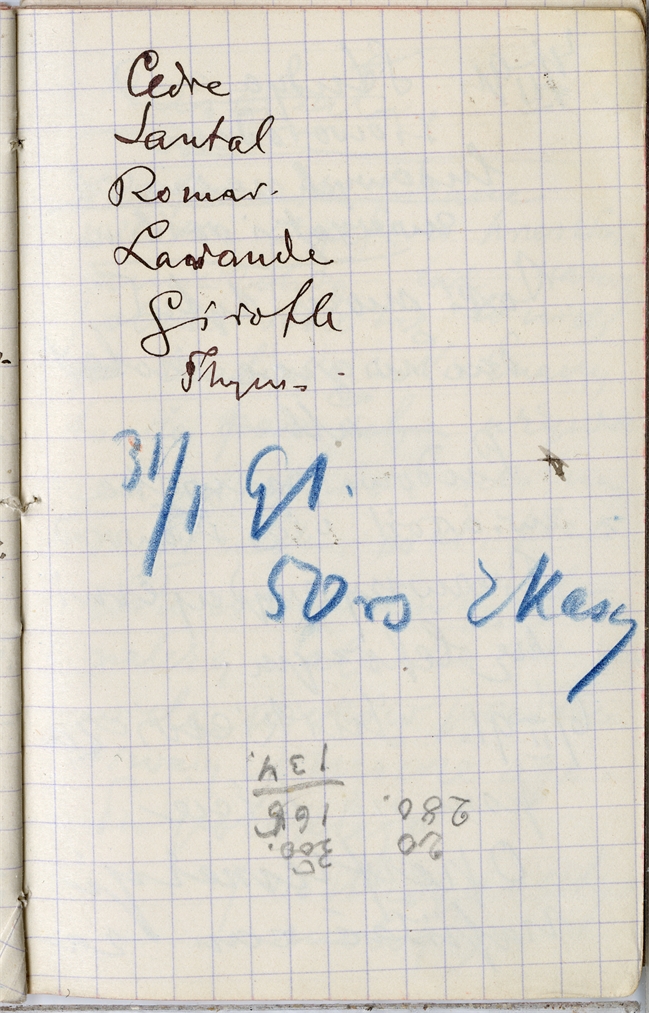 Cedre
Santal
Romar.
Lavande
Girofle
Thym.
31/1 Gł.
50 rs z Kasy
20
280.
300.
166
134.